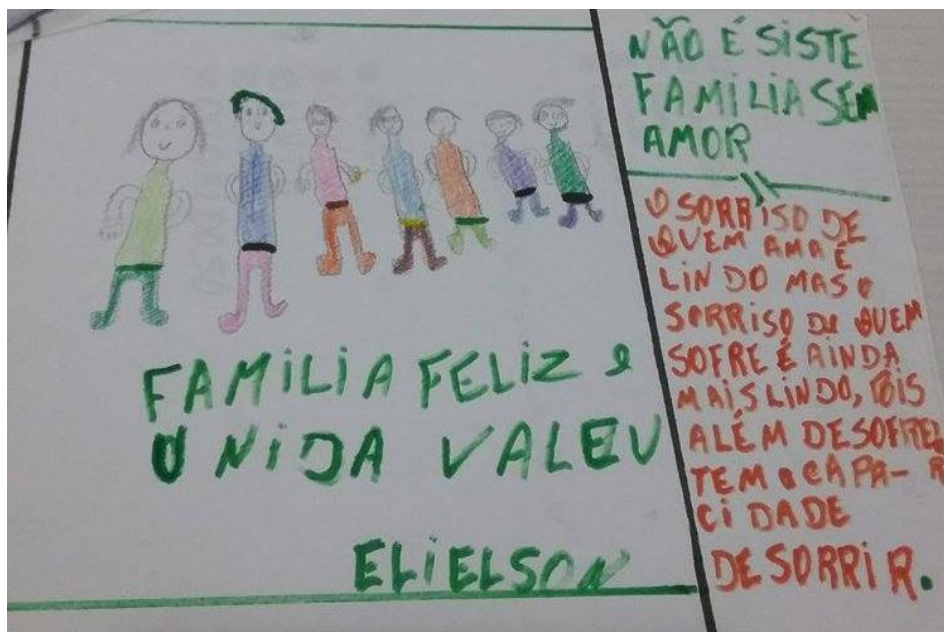 FAMILIA FELIZ e
UNIDA VALEU
ELIELSON
NÃO É SISTE
FAMILIA SEM
AMOR
O SORRISO DE
QUEM AMA É
LINDO MAS O
SORRISO DE QUEM
SOFRE É AINDA
MAIS LINDO, POIS
ALÉM DE SOFRER
TEM a CAPA-
CIDADE
DE SORRIR.